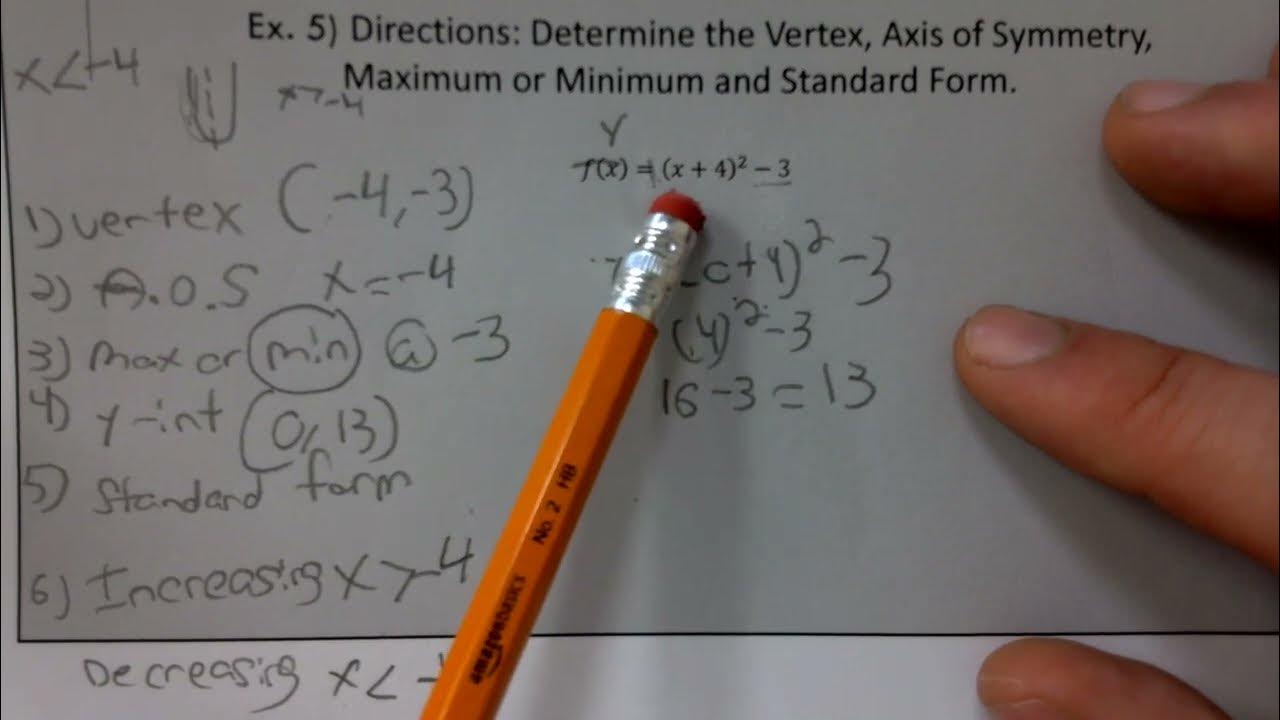 Ex. 5) Directions: Determine the Vertex, Axis of Symmetry,
Maximum or Minimum and Standard Form.
x<-4
x>-4
Y
f(x) = (x + 4)² − 3
1) vertex (-4,-3)
2) A.O.S x=-4
3) max or min @ -3
4) y-int (0, 13)
5) Standard form
6) Increasing x>-4
Decreasing x<
+4)² -3
(4)² -3
16-3=13
No. 2 HB
amazonbasics